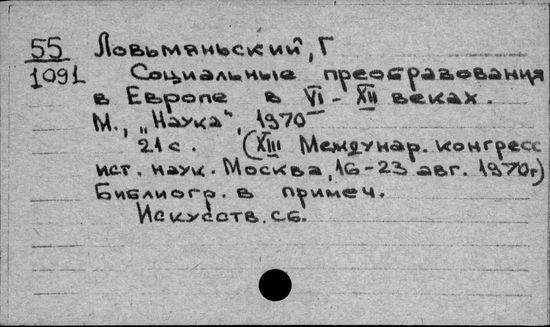 55 Ловьмяньский, Г
1091 Социальные преобразования
в Европе в VI - XII веках.
М., „Наука", 1970
21 с. (XIII Междунар. конгресс
ист. наук. Москва, 16-23 авг. 1970г.)
Библиогр. в примеч.
Искусств. сб.